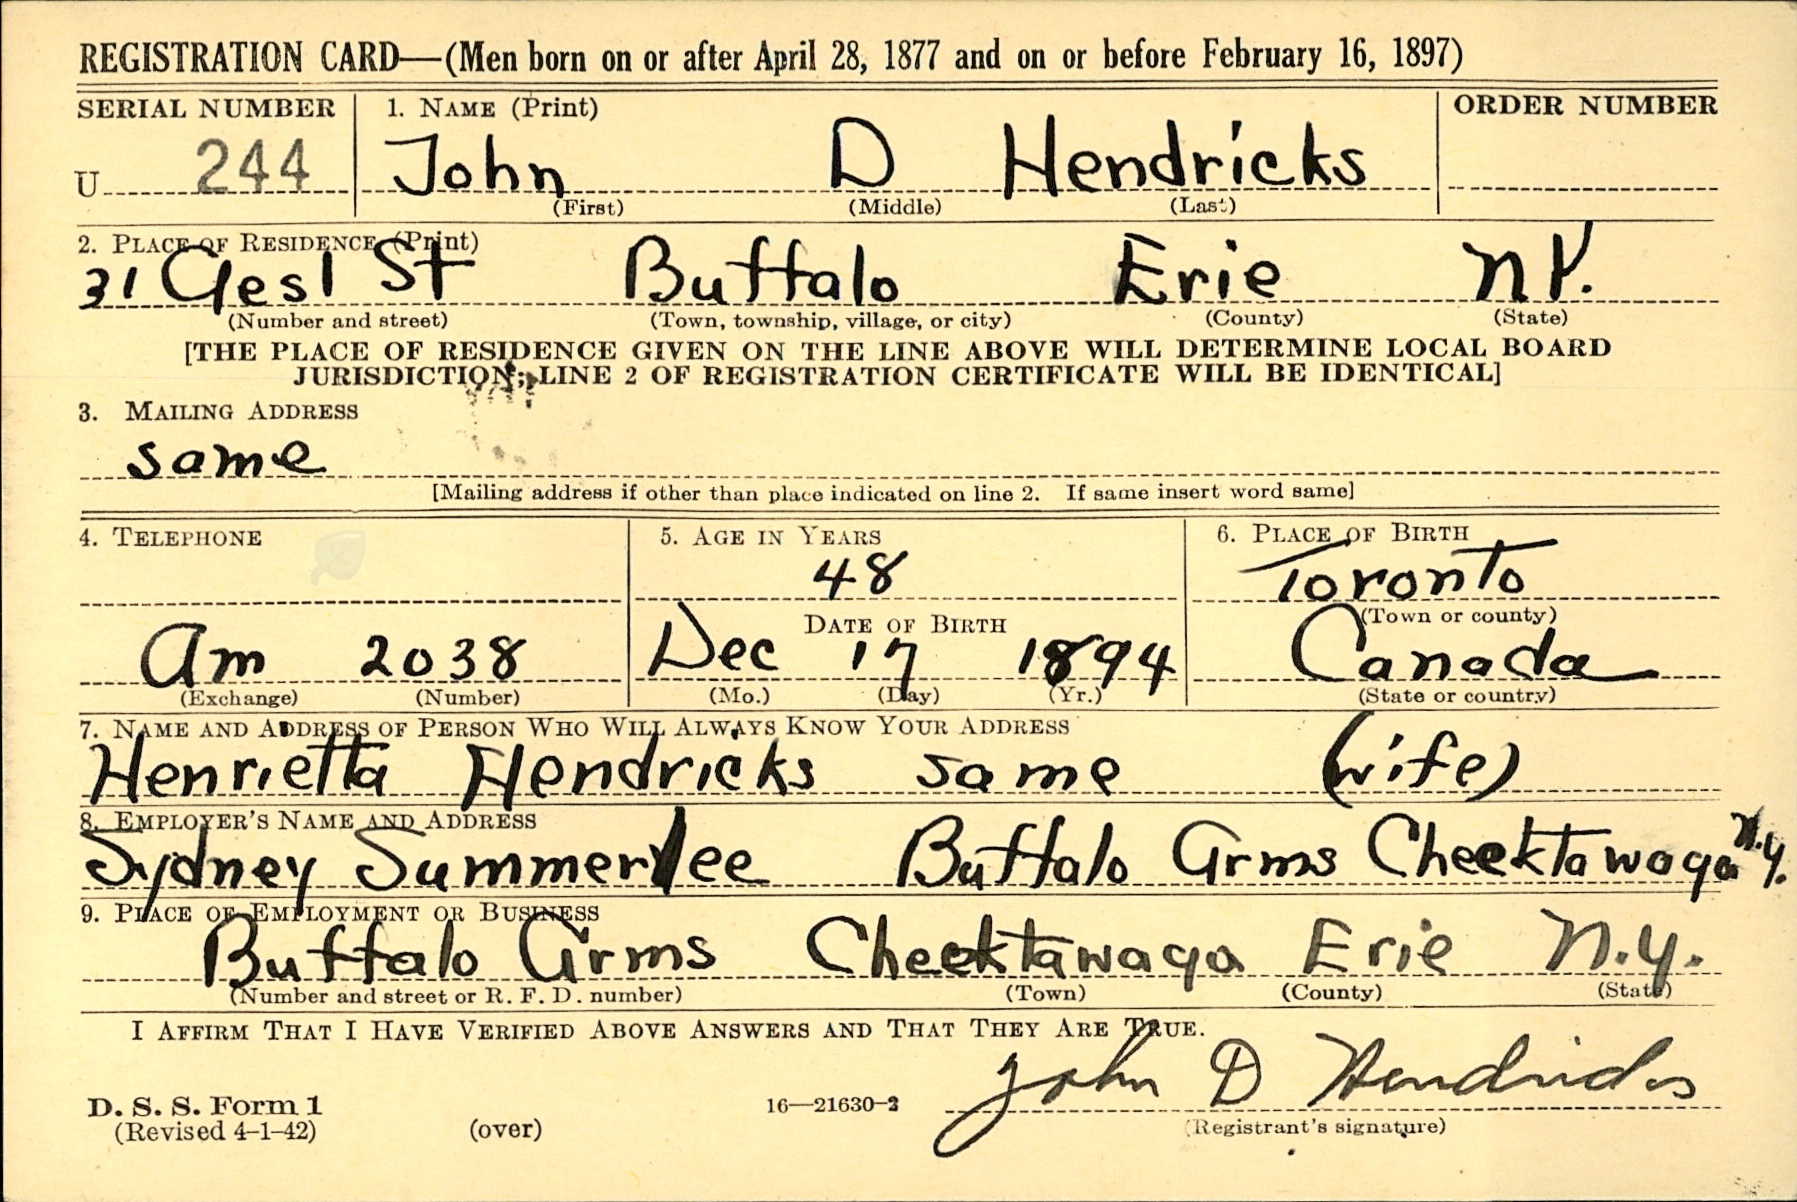 REGISTRATION CARD—(Men born on or after April 28, 1877 and on or before February 16, 1897)
SERIAL NUMBER 1. NAME (Print) ORDER NUMBER
U 244 John D Hendricks
(First) (Middle) (Last)
2. PLACE OF RESIDENCE (Print)
31 St Buffalo Erie N.Y.
(Number and street) (Town, township, village, or city) (County) (State)
[THE PLACE OF RESIDENCE GIVEN ON THE LINE ABOVE WILL DETERMINE LOCAL BOARD
JURISDICTION; LINE 2 OF REGISTRATION CERTIFICATE WILL BE IDENTICAL]
3. MAILING ADDRESS
same
[Mailing address if other than place indicated on line 2. If same insert word same]
4. TELEPHONE 5. AGE IN YEARS 6. PLACE OF BIRTH
48 Toronto
DATE OF BIRTH (Town or county)
Am 2038 Dec 17 1894 Canada
(Exchange) (Number) (Mo.) (Day) (Yr.) (State or country)
7. NAME AND ADDRESS OF PERSON WHO WILL ALWAYS KNOW YOUR ADDRESS
Henrietta Hendricks same (wife)
8. EMPLOYER'S NAME AND ADDRESS
Sydney Summerlee Buffalo Arms Cheektawaga N.Y.
9. PLACE OF EMPLOYMENT OR BUSINESS
Buffalo Arms Cheektawaga Erie N.Y.
(Number and street or R. F. D. number) (Town) (County) (State)
I AFFIRM THAT I HAVE VERIFIED ABOVE ANSWERS AND THAT THEY ARE TRUE.
John D Hendricks
D. S. S. Form 1 16—21630-2
(Revised 4-1-42) (over) (Registrant's signature)